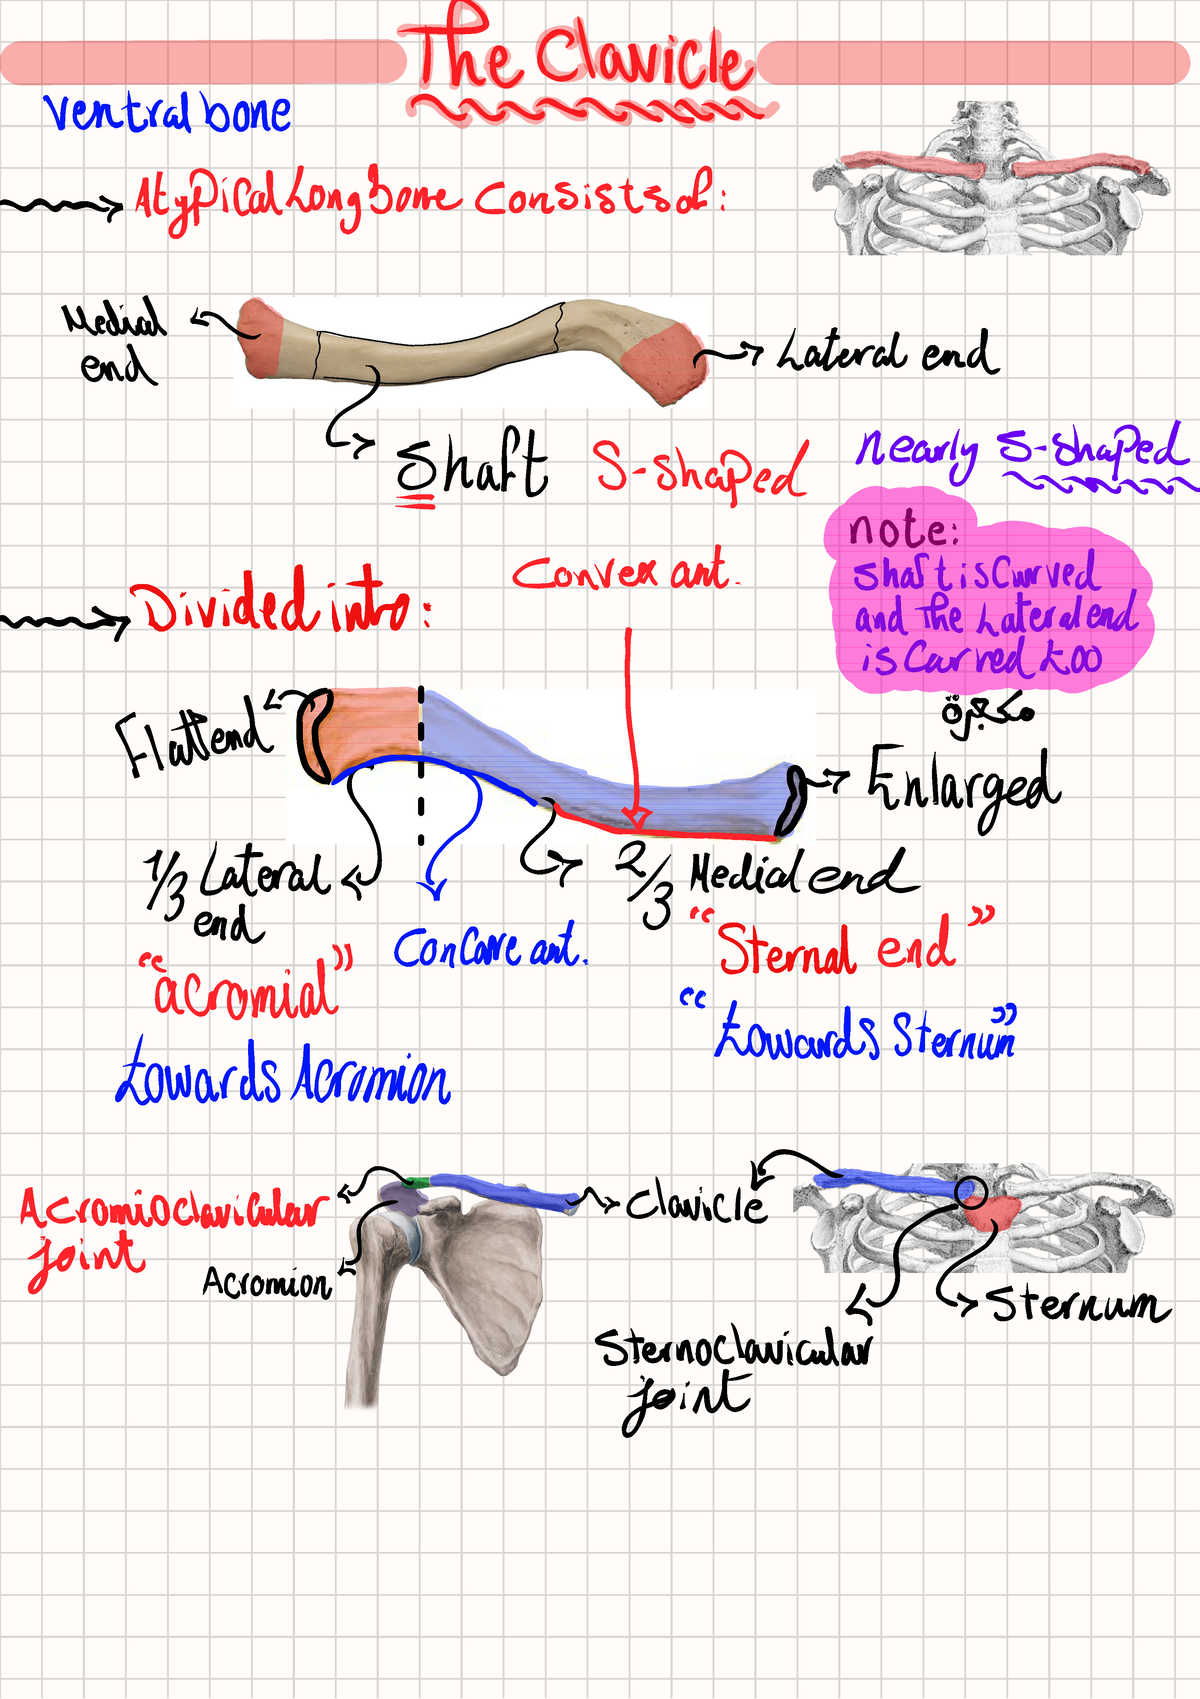 The Clavicle
ventral bone
Atypical Long bone consists of:
Medial
end
Lateral end
Shaft
S-shaped
nearly S-shaped
note:
Shaft is Curved
and The Lateral end
is Curved too
Convex ant.
Divided into:
Flat end
مكبرة
Enlarged
1/3 Lateral
end
"acromial"
towards Acromion
Concave ant.
2/3 Medial end
"Sternal end"
"towards Sternum"
Acromioclavicular
joint
Acromion
Clavicle
Sternoclavicular
joint
Sternum